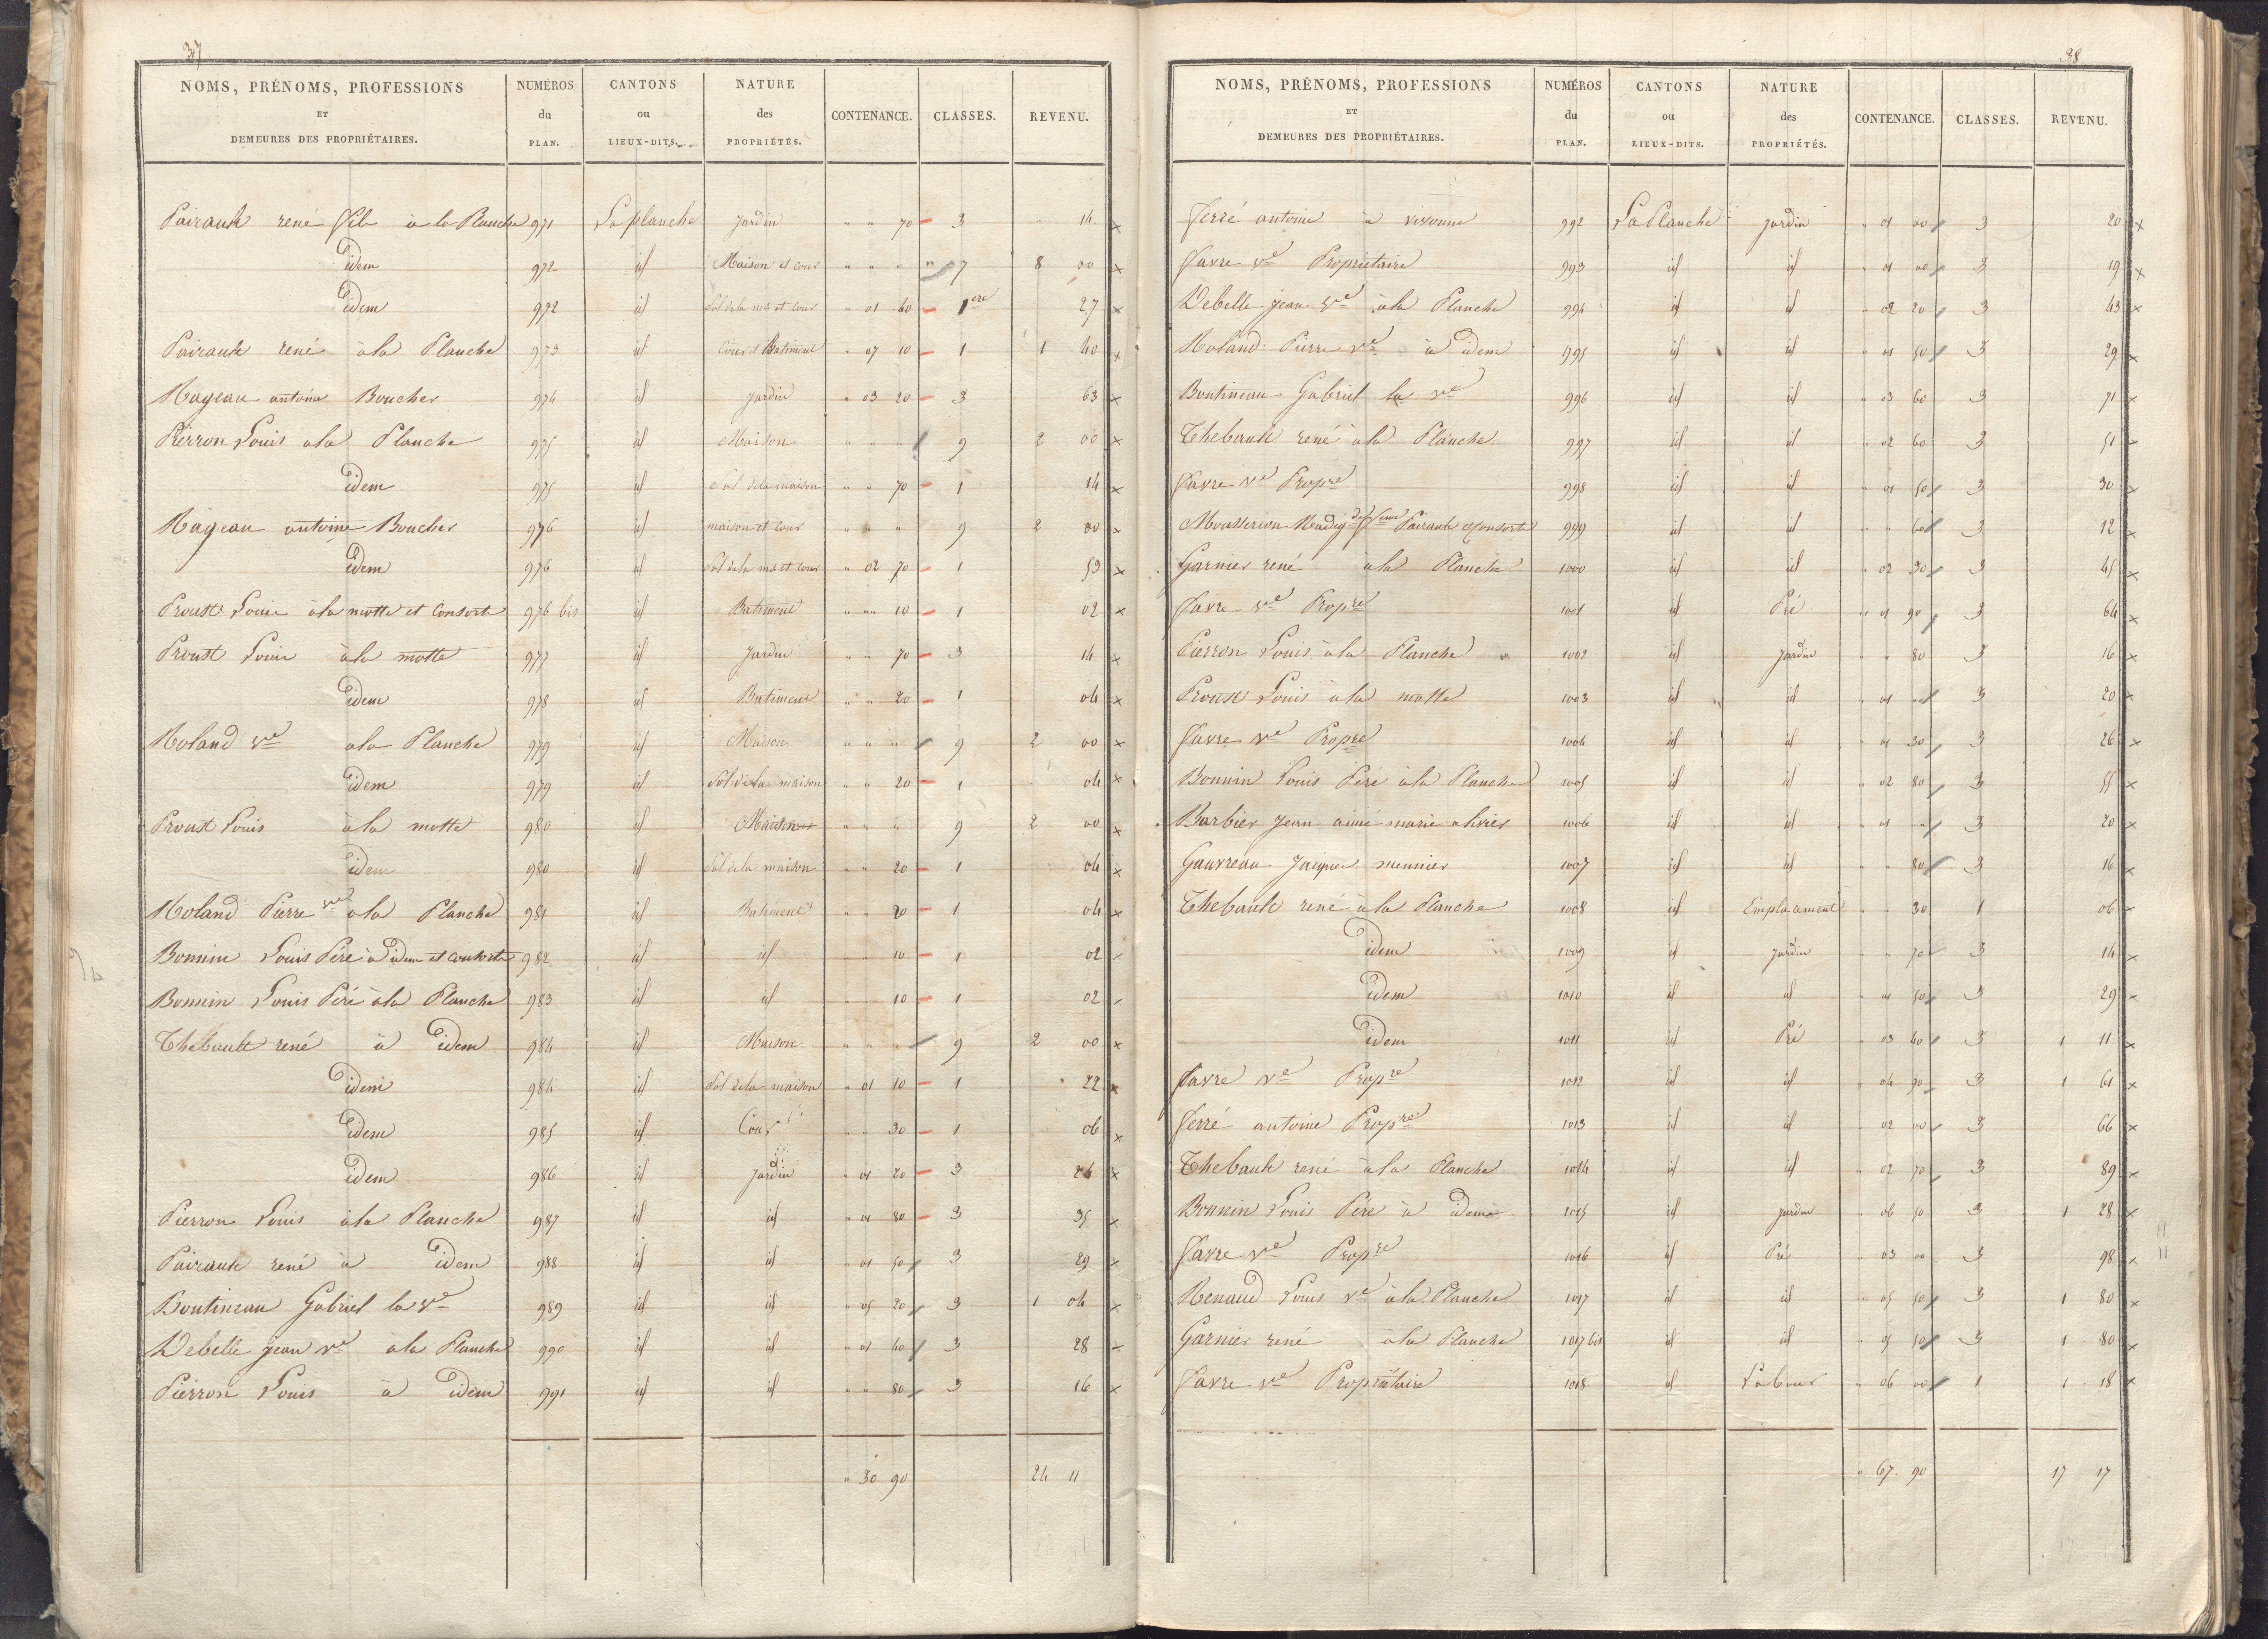 37
NOMS, PRÉNOMS, PROFESSIONS ET DEMEURES DES PROPRIÉTAIRES. NUMÉROS du PLAN. CANTONS ou LIEUX-DITS. NATURE des PROPRIÉTÉS. CONTENANCE. CLASSES. REVENU.
Pairault rené fils à la Planche 971 La planche Jardin " " 70 3 14 x
idem 972 id Maison et cour " " " " 7 8 00 x
idem 972 id Sol de la mo et cour " 01 40 1ere 27 x
Pairault rené à la Planche 973 id Cour & Batiment " 07 10 1 1 40 x
Rageau antoine Boucher 974 id Jardin " 03 20 3 63 x
Pierron Louis à la Planche 975 id Maison " " " 9 2 00 x
idem 975 id Sol de la maison " " 70 1 14 x
Rageau antoine Boucher 976 id maison et cour " " " 9 2 00 x
idem 976 id Sol de la mo et cour " 02 70 1 53 x
Proust Louis à la motte et Consorts 976 bis id Batiment " " 10 1 02 x
Proust Louis à la motte 977 id Jardin " " 70 3 14 x
idem 978 id Batiment " " 20 1 04 x
Roland ve à la Planche 979 id Maison " " " 9 2 00 x
idem 979 id Sol de la maison " " 20 1 04 x
Proust Louis à la motte 980 id Maison " " " 9 2 00 x
idem 980 id Sol de la maison " " 20 1 04 x
Roland Pierre ve à la Planche 981 id Batiment " " 20 1 04 x
Bonnin Louis Père à idem et consorts 982 id id " " 10 1 02
Bonnin Louis Père à la Planche 983 id id " " 10 1 02
Thebault rené à idem 984 id Maison " " " 9 2 00 x
idem 984 id Sol de la maison " 01 10 1 22 x
idem 985 id Cour " " 30 1 06 x
idem 986 id Jardin " 01 20 3 24 x
Pierron Louis à la Planche 987 id id " 01 80 3 35 x
Pairault rené à idem 988 id id " 01 50 3 29 x
Boutineau Gabriel la ve 989 id id " 05 20 3 1 04 x
Debelle jean ve à la Planche 990 id id " 01 40 3 28 x
Pierron Louis à idem 991 id id " " 80 3 16 x
" 30 90 24 11
38
NOMS, PRÉNOMS, PROFESSIONS ET DEMEURES DES PROPRIÉTAIRES. NUMÉROS du PLAN. CANTONS ou LIEUX-DITS. NATURE des PROPRIÉTÉS. CONTENANCE. CLASSES. REVENU.
ferré antoine à vivonne 992 La Planche jardin " 01 00 3 20 x
favre ve Propriétaire 993 id id " 01 00 3 19 x
Debelle jean ve à la Planche 994 id id " 02 20 3 43 x
Roland Pierre ve à idem 995 id id " 01 50 3 29 x
Boutineau Gabriel la ve 996 id id " 03 60 3 71 x
Thebault rené à la Planche 997 id id " 02 60 3 51
favre ve Propre 998 id id " 01 50 3 30 x
Pairault Consort 999 id id " " 60 3 12 x
Garnier rené à la Planche 1000 id id " 02 30 3 45 x
favre ve Propre 1001 id Pré " 01 90 3 64 x
Pierron Louis à la Planche 1002 id Jardin " " 80 3 16 x
Proust Louis à la motte 1003 id id " 01 " 3 20 x
favre ve Propre 1004 id id " 01 30 3 26 x
Bonnin Louis Père à la Planche 1005 id id " 02 80 3 55 x
Barbier jean aimé marie olivier 1006 id id " 01 " 3 20 x
Gauvreau Jacques meunier 1007 id id " " 80 3 16 x
Thebault rené à la Planche 1008 id Emplacement " " 30 1 06
idem 1009 id jardin " " 70 3 14 x
idem 1010 id id " 01 50 3 29
idem 1011 id Pré " 03 40 3 1 11 x
favre ve Propre 1012 id id " 04 90 3 1 61 x
ferré antoine Propre 1013 id id " 02 00 3 66 x
Thebault rené à la Planche 1014 id id " 02 70 3 89 x
Bonnin Louis Père à idem 1015 id jardin " 06 50 3 1 28 x
favre ve Propre 1016 id Pré " 03 00 3 98 x
Renaud Louis ve à la Planche 1017 id id " 05 50 3 1 80 x
Garnier rené à la Planche 1017 bis id id " 05 50 3 1 80 x
favre ve Propriétaire 1018 id Labour " 06 00 1 1 18 x
" 67 90 17 17